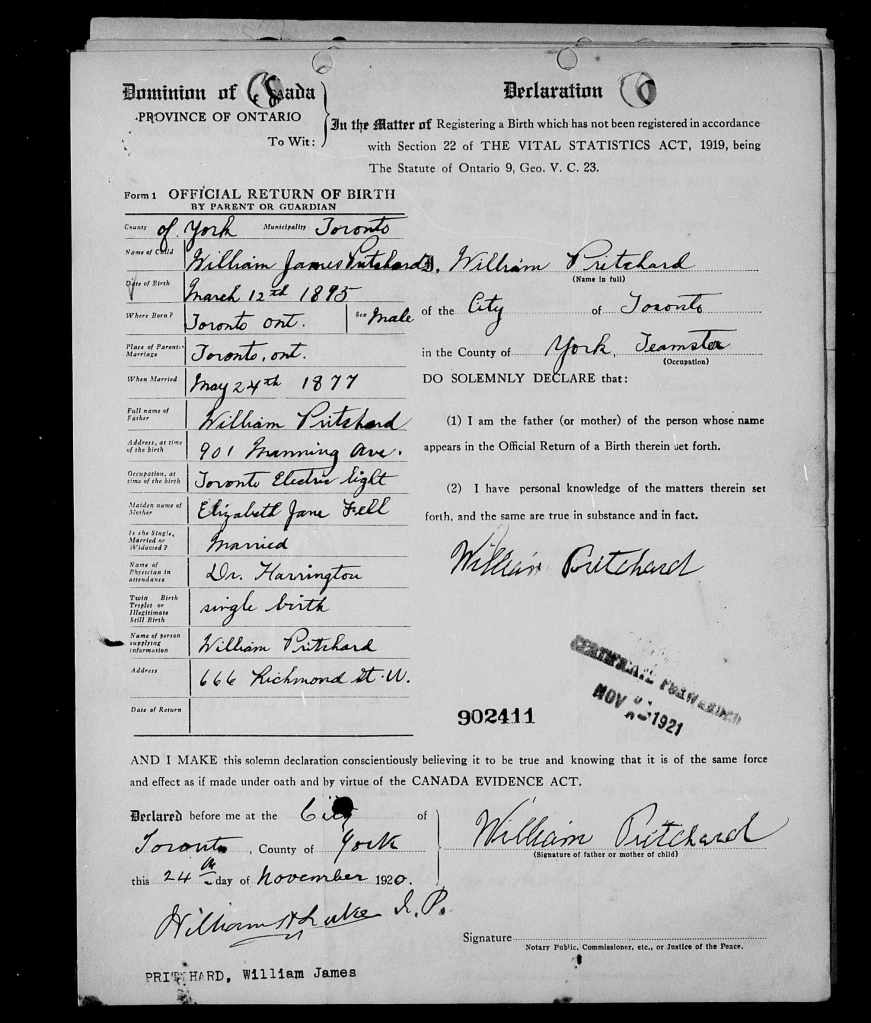 Dominion of Canada
PROVINCE OF ONTARIO
To Wit:
Declaration
In the Matter of Registering a Birth which has not been registered in accordance
with Section 22 of THE VITAL STATISTICS ACT, 1919, being
The Statute of Ontario 9, Geo. V. C. 23.
Form 1 OFFICIAL RETURN OF BIRTH
BY PARENT OR GUARDIAN
County of York Municipality Toronto
Name of Child William James Pritchard
Date of Birth March 12th 1895
Where Born? Toronto ont. Sex Male
Place of Parents' Marriage Toronto, ont.
When Married May 24th 1877
Full name of Father William Pritchard
Address, at time of the birth 901 Manning Ave.
Occupation, at time of the birth Toronto Electric Light
Maiden name of Mother Elizabeth Jane Fell
Is the Single, Married or Widowed? Married
Name of Physician in attendance Dr. Harrington
Twin Birth Triplet or Illegitimate Still Birth single birth
Name of person supplying information William Pritchard
Address 666 Richmond St. W.
Date of Return
I, William Pritchard
(Name in full)
of the City of Toronto
in the County of York, Teamster
(Occupation)
DO SOLEMNLY DECLARE that:
(1) I am the father (or mother) of the person whose name
appears in the Official Return of a Birth therein set forth.
(2) I have personal knowledge of the matters therein set
forth, and the same are true in substance and in fact.
William Pritchard
CERTIFICATE FORWARDED
NOV 1921
902411
AND I MAKE this solemn declaration conscientiously believing it to be true and knowing that it is of the same force
and effect as if made under oath and by virtue of the CANADA EVIDENCE ACT.
Declared before me at the City of
Toronto, County of York
this 24th day of November 1920.
William Pritchard
(Signature of father or mother of child)
William H Luke J. P.
Signature
Notary Public, Commissioner, etc., or Justice of the Peace.
PRITCHARD, William James